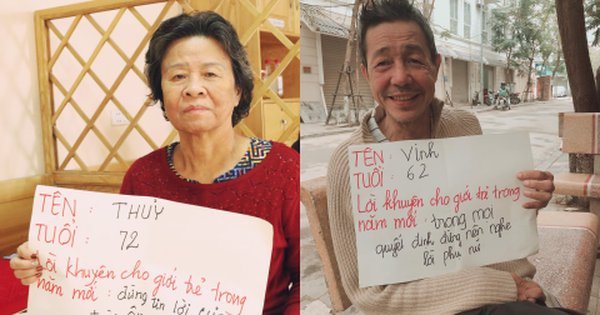 TÊN : THUỶ
TUỔI : 72
Lời khuyên cho giới trẻ trong
năm mới : đừng tin lời
TÊN : Vinh
TUỔI : 62
Lời khuyên cho giới trẻ trong
năm mới : trong mọi
quyết định đừng nên nghe
lời phụ nữ